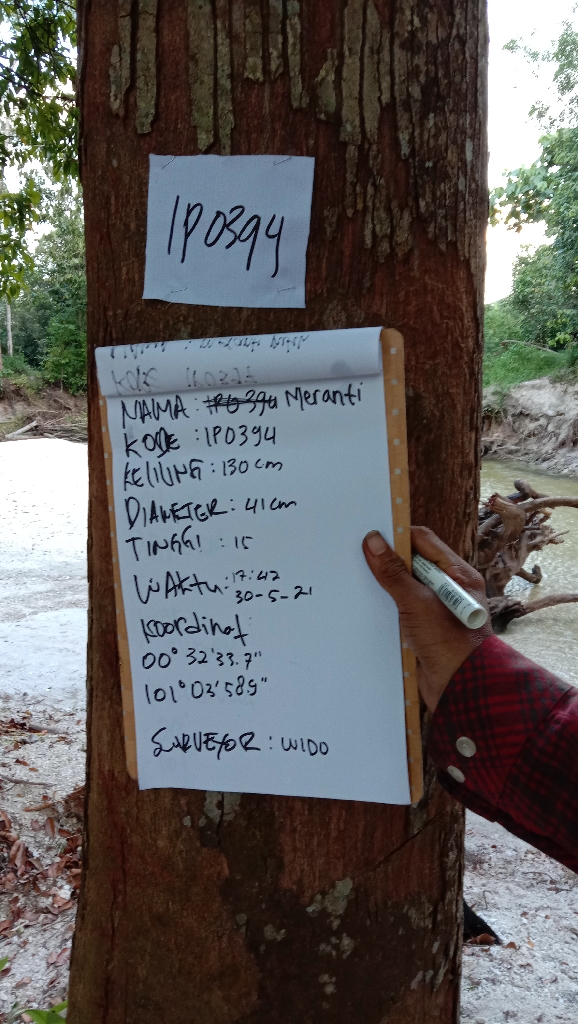 IP0394
KODE
NAMA : Meranti
KODE : IP0394
KELILING : 130 cm
DIAMETER : 41 cm
TINGGI : 15
WAKTU : 17:42
30-5-21
Koordinat
00° 32'33.7"
101° 03'58.9"
SURVEYOR : WIDO